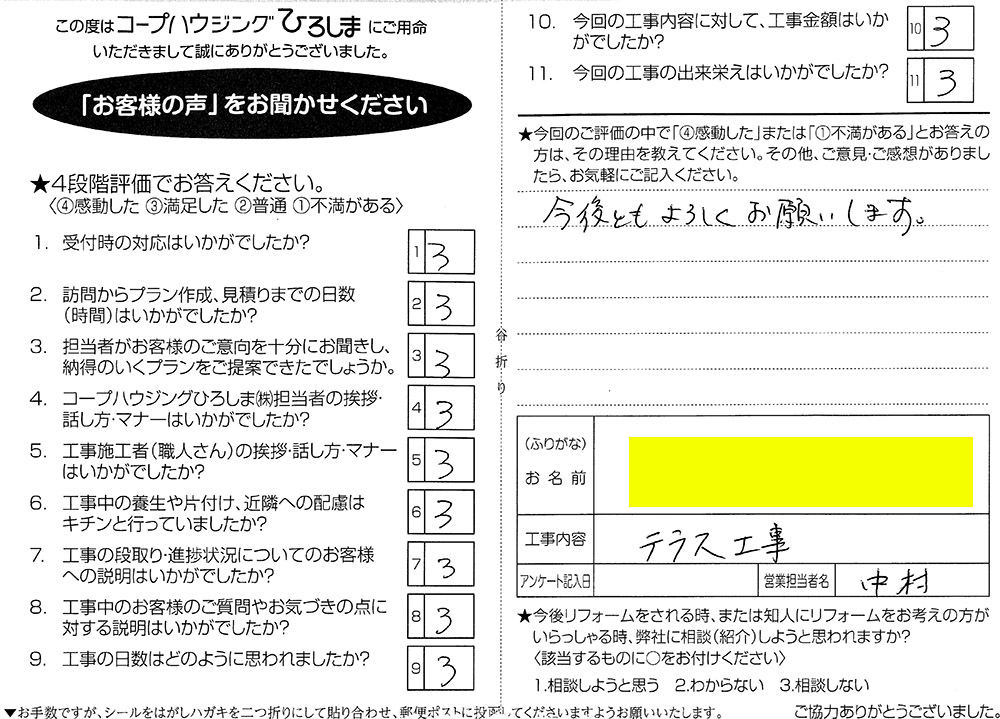 この度はコープハウジングひろしまにご用命
いただきまして誠にありがとうございました。
「お客様の声」をお聞かせください
★4段階評価でお答えください。
〈④感動した ③満足した ②普通 ①不満がある〉
1. 受付時の対応はいかがでしたか?
1 3
2. 訪問からプラン作成、見積りまでの日数
(時間)はいかがでしたか?
2 3
3. 担当者がお客様のご意向を十分にお聞きし、
納得のいくプランをご提案できたでしょうか。
3 3
4. コープハウジングひろしま㈱担当者の挨拶・
話し方・マナーはいかがでしたか?
4 3
5. 工事施工者(職人さん)の挨拶・話し方・マナー
はいかがでしたか?
5 3
6. 工事中の養生や片付け、近隣への配慮は
キチンと行っていましたか?
6 3
7. 工事の段取り・進捗状況についてのお客様
への説明はいかがでしたか?
7 3
8. 工事中のお客様のご質問やお気づきの点に
対する説明はいかがでしたか?
8 3
9. 工事の日数はどのように思われましたか?
9 3
▼お手数ですが、シールをはがしハガキを二つ折りにして貼り合わせ、郵便ポストに投函してくださいますようお願いいたします。
谷折り
10. 今回の工事内容に対して、工事金額はいか
がでしたか?
10 3
11. 今回の工事の出来栄えはいかがでしたか?
11 3
★今回のご評価の中で「④感動した」または「①不満がある」とお答えの
方は、その理由を教えてください。その他、ご意見・ご感想がありまし
たら、お気軽にご記入ください。
今後ともよろしくお願いします。
(ふりがな)
お名前
工事内容 テラス工事
アンケート記入日 営業担当者名 中村
★今後リフォームをされる時、または知人にリフォームをお考えの方が
いらっしゃる時、弊社に相談(紹介)しようと思われますか?
〈該当するものに○をお付けください〉
1.相談しようと思う 2.わからない 3.相談しない
ご協力ありがとうございました。